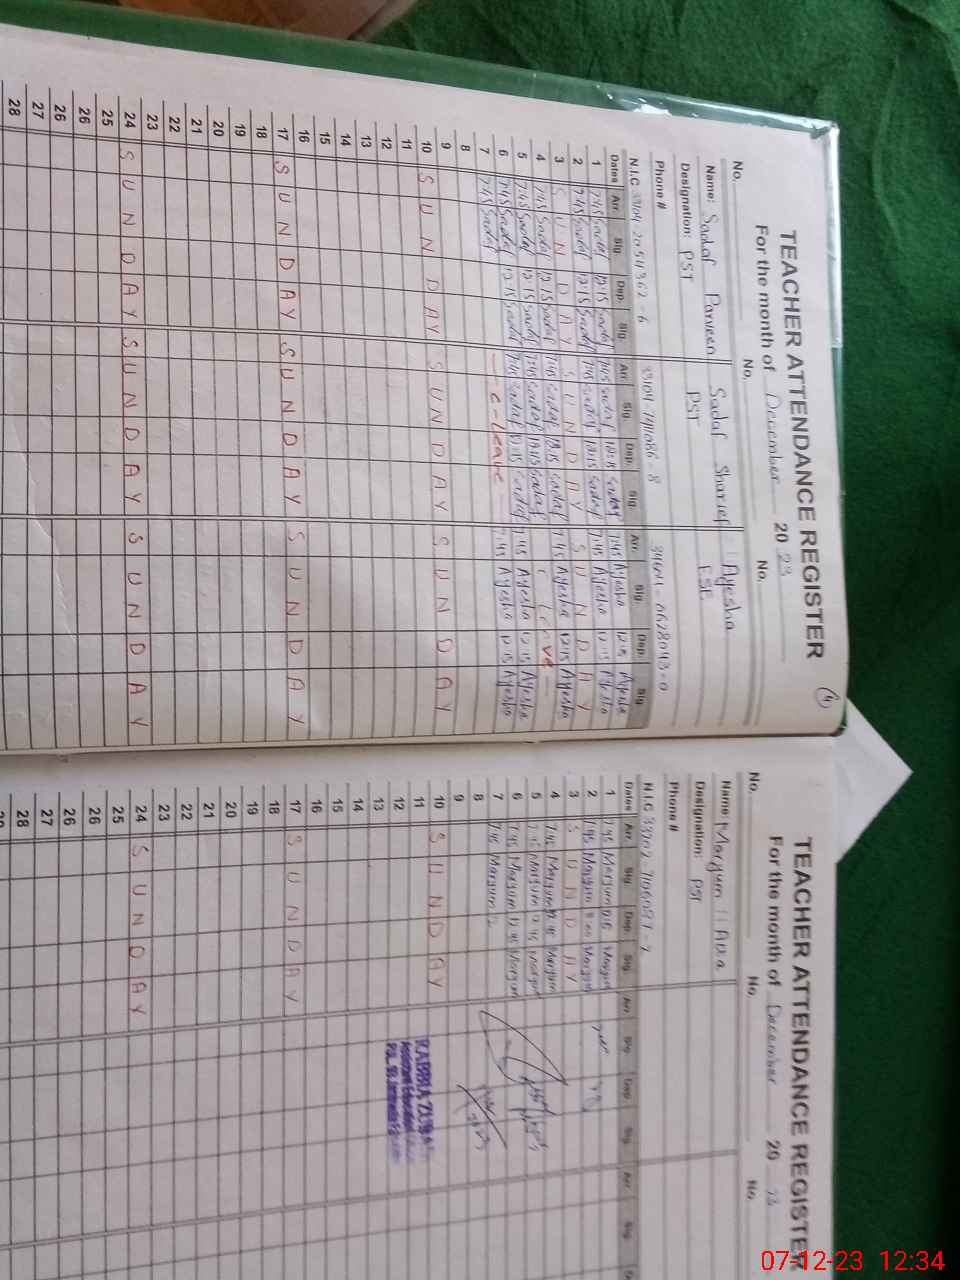 TEACHER ATTENDANCE REGISTER
For the month of December 2023
No. No. No.
Name: Sadaf Parveen Sadaf Sharief Ayesha
Designation: PST PST ESE
Phone #
N.I.C
Dates Arr. Sig. Dep. Sig. Arr. Sig. Dep. Sig. Arr. Sig. Dep. Sig.
1 7:45 Sadaf 12:15 Sadaf 7:45 Sadaf 12:15 Sadaf 7:45 Ayesha 12:15 Ayesha
2 7:45 Sadaf 12:15 Sadaf 7:45 Sadaf 12:15 Sadaf 7:45 Ayesha 12:15 Ayesha
3 SUNDAY SUNDAY SUNDAY
4 7:45 Sadaf 12:15 Sadaf 7:45 Sadaf 12:15 Sadaf 7:45 Ayesha 12:15 Ayesha
5 7:45 Sadaf 12:15 Sadaf 7:45 Sadaf 12:15 Sadaf Leave
6 7:45 Sadaf 12:15 Sadaf 7:45 Sadaf 12:15 Sadaf 7:45 Ayesha 12:15 Ayesha
7 7:45 Sadaf C-Leave 7:45 Ayesha 12:15 Ayesha
8
9
10 SUNDAY SUNDAY SUNDAY
11
12
13
14
15
16
17 SUNDAY SUNDAY SUNDAY
18
19
20
21
22
23
24 SUNDAY SUNDAY SUNDAY
25
26
26
27
28
TEACHER ATTENDANCE REGISTER
For the month of December 2023
No. No. No.
Name: Maryum
Designation: PST
Phone #
N.I.C
Dates Arr. Sig. Dep. Sig. Arr. Sig. Dep. Sig. Arr. Sig.
1 7:45 Maryum
2 7:45 Maryum Maryum
3 SUNDAY
4 7:45 Maryum 12:45 Maryum
5 7:45 Maryum 12:45 Maryum
6 7:45 Maryum 12:45 Maryum
7 7:45 Maryum
8
9
10 SUNDAY
11
12
13
14
15
16
17 SUNDAY
18
19
20
21
22
23
24 SUNDAY
25
26
26
27
28
RABBIA
Assistant Education
07-12-23 12:34